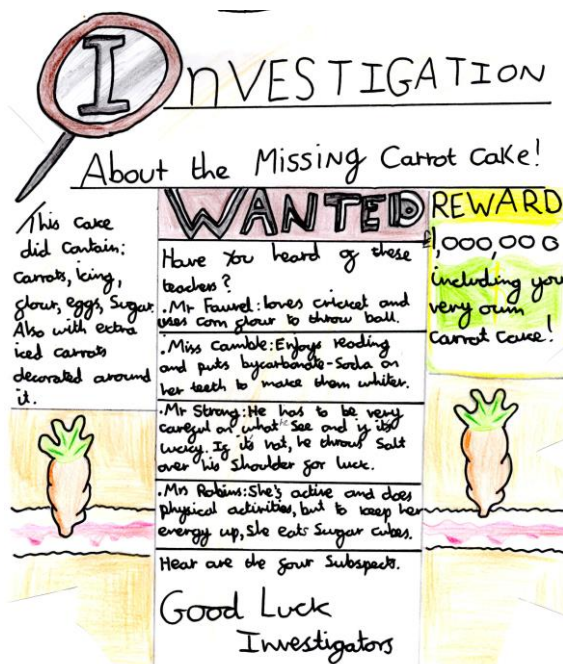 InVESTIGATION
About the Missing Carrot Cake!
This cake
did contain:
carrots, icing,
flour, eggs, sugar.
Also with extra
iced carrots
decorated around
it.
WANTED
Have you heard of these
teachers?
.Mr Faurel: loves cricket and
uses corn flour to throw ball.
.Miss Camble: Enjoys reading
and puts bycarbonate-Soda on
her teeth to make them whiter.
.Mr Strong: He has to be very
careful on what he See and if its
lucky. If its not, he throws Salt
over his Shoulder for luck.
.Mrs Robins: She's active and does
physical activities, but to keep her
energy up, She eats Sugar cubes.
Hear are the four Subspects.
Good Luck
Investigators
REWARD
1,000,000
including your
very own
carrot cake!